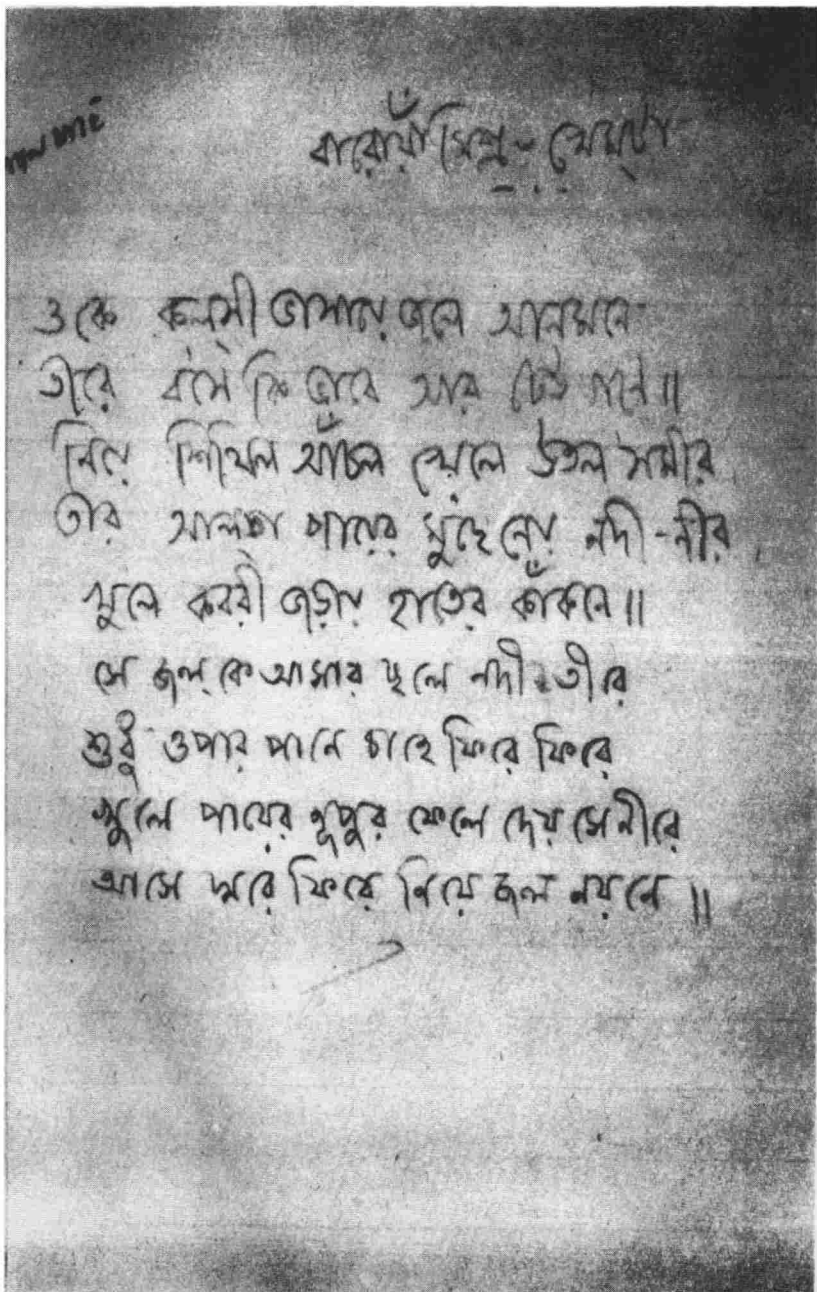 বারোয়াঁ মিশ্র - খেমটা
ও কে কলসী ভাসায়ে জলে আনমনে
তীরে ব'সে কি ভাবে আর ঢেউ গনে॥
নিয়ে শিথিল আঁচল খেলে উতল সমীর
তার আলতা পায়ের মুছে নেয় নদী-নীর,
খুলে কবরী জড়ায় হাতের কাঁকনে॥
সে জল্‌কে আসার ছলে নদী-তীরে
শুধু ওপার পানে চাহে ফিরে ফিরে
খুলে পায়ের নূপুর ফেলে দেয় সে নীরে
আসে ঘরে ফিরে নিয়ে জল নয়নে॥